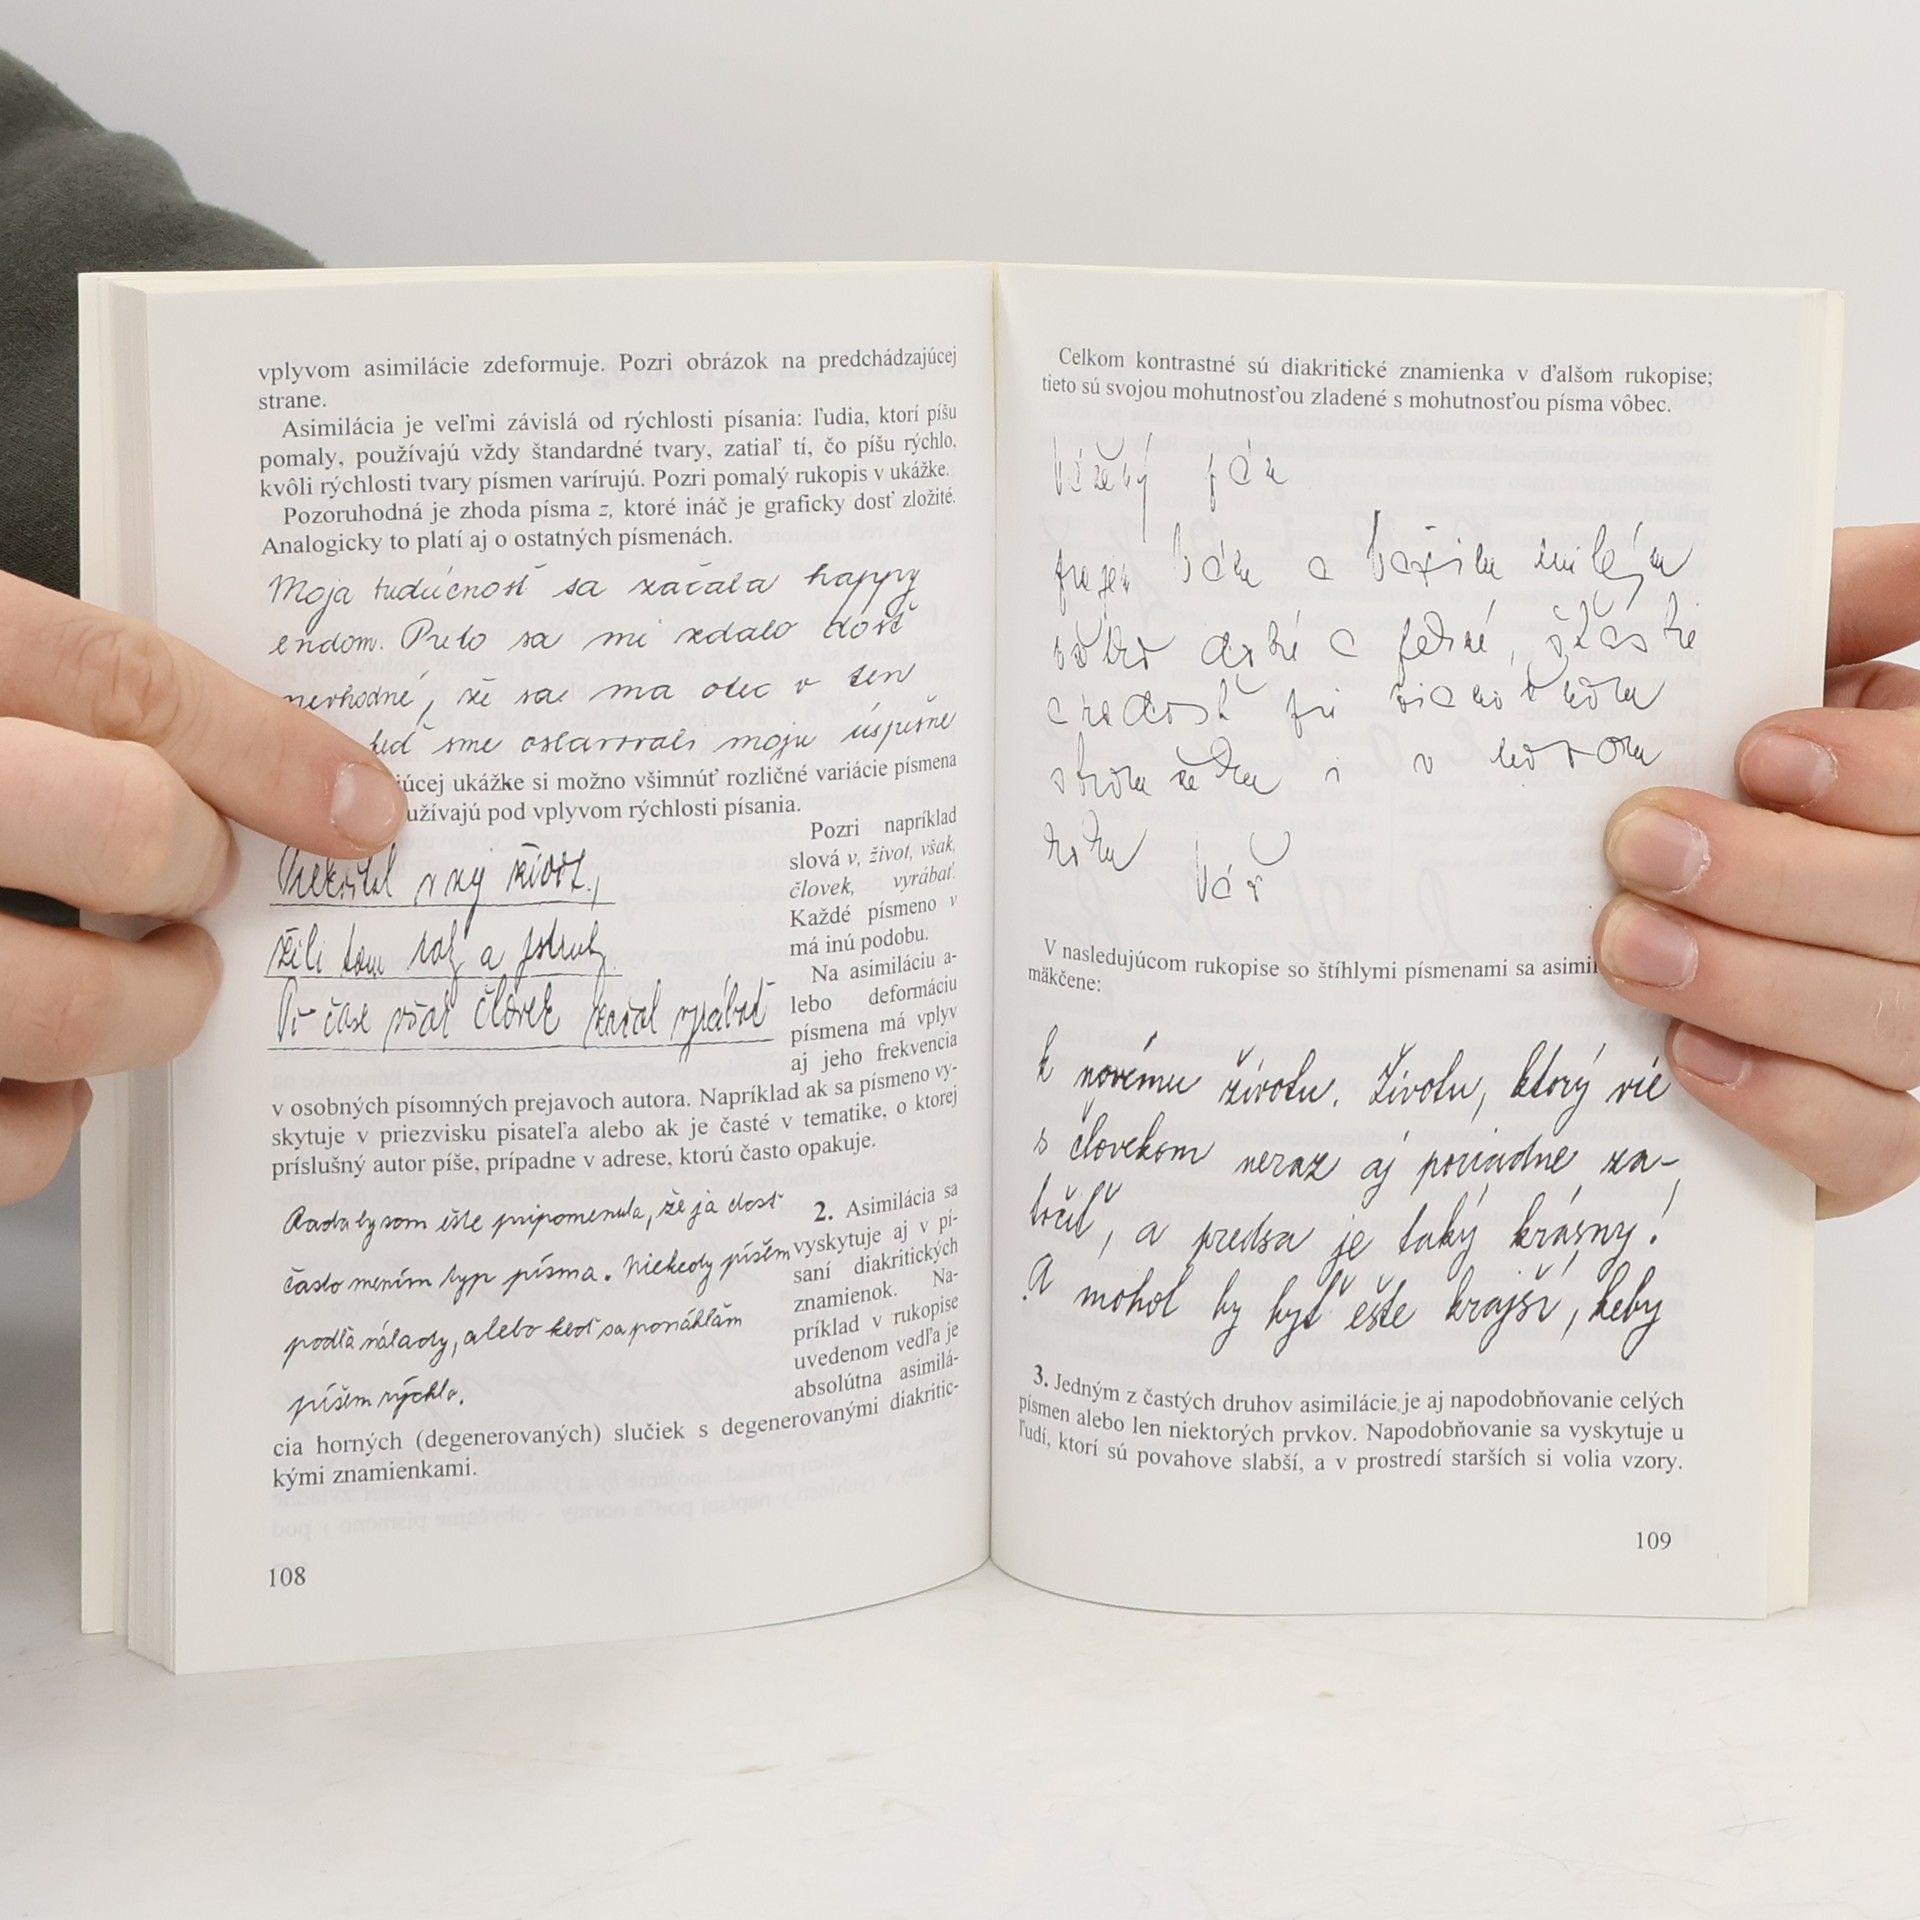 vplyvom asimilácie zdeformuje. Pozri obrázok na predchádzajúcej
strane.
Asimilácia je veľmi závislá od rýchlosti písania: ľudia, ktorí píšu
pomaly, používajú vždy štandardné tvary, zatiaľ tí, čo píšu rýchlo,
kvôli rýchlosti tvary písmen varírujú. Pozri pomalý rukopis v ukážke.
Pozoruhodná je zhoda písma z, ktoré ináč je graficky dosť zložité.
Analogicky to platí aj o ostatných písmenách.
Moja budúcnosť sa začala happy
endom. Preto sa mi zdalo dosť
nevhodné, že sa ma otec v ten
keď sme oslavovali moju úspešne
júcej ukážke si možno všimnúť rozličné variácie písmena
užívajú pod vplyvom rýchlosti písania.
život,
žili tam raky a pstruhy.
Po čase však človek začal vyrábať
Pozri napríklad
slová v, život, však,
človek, vyrábať.
Každé písmeno v
má inú podobu.
Na asimiláciu a-
lebo deformáciu
písmena má vplyv
aj jeho frekvencia
v osobných písomných prejavoch autora. Napríklad ak sa písmeno vy-
skytuje v priezvisku pisateľa alebo ak je časté v tematike, o ktorej
príslušný autor píše, prípadne v adrese, ktorú často opakuje.
Rada by som ešte pripomenula, že ja dosť
často mením typ písma. Niekedy píšem
podľa nálady, alebo keď sa ponáhľam
píšem rýchlo.
2. Asimilácia sa
vyskytuje aj v pí-
saní diakritických
znamienok. Na-
príklad v rukopise
uvedenom vedľa je
absolútna asimilá-
cia horných (degenerovaných) slučiek s degenerovanými diakritic-
kými znamienkami.
108
Celkom kontrastné sú diakritické znamienka v ďalšom rukopise;
tieto sú svojou mohutnosťou zladené s mohutnosťou písma vôbec.
Vážený pán
prajem Vám a Vašim milým
všetko dobré a pekné, šťastie
a radosť pri
i v novom
roku Váš
V nasledujúcom rukopise so štíhlymi písmenami sa asimi
mäkčene:
k novému životu. Životu, ktorý vie
s človekom neraz aj poriadne za-
točiť, a predsa je taký krásny!
A mohol by byť ešte krajší, keby
3. Jedným z častých druhov asimilácie je aj napodobňovanie celých
písmen alebo len niektorých prvkov. Napodobňovanie sa vyskytuje u
ľudí, ktorí sú povahove slabší, a v prostredí starších si volia vzory.
109